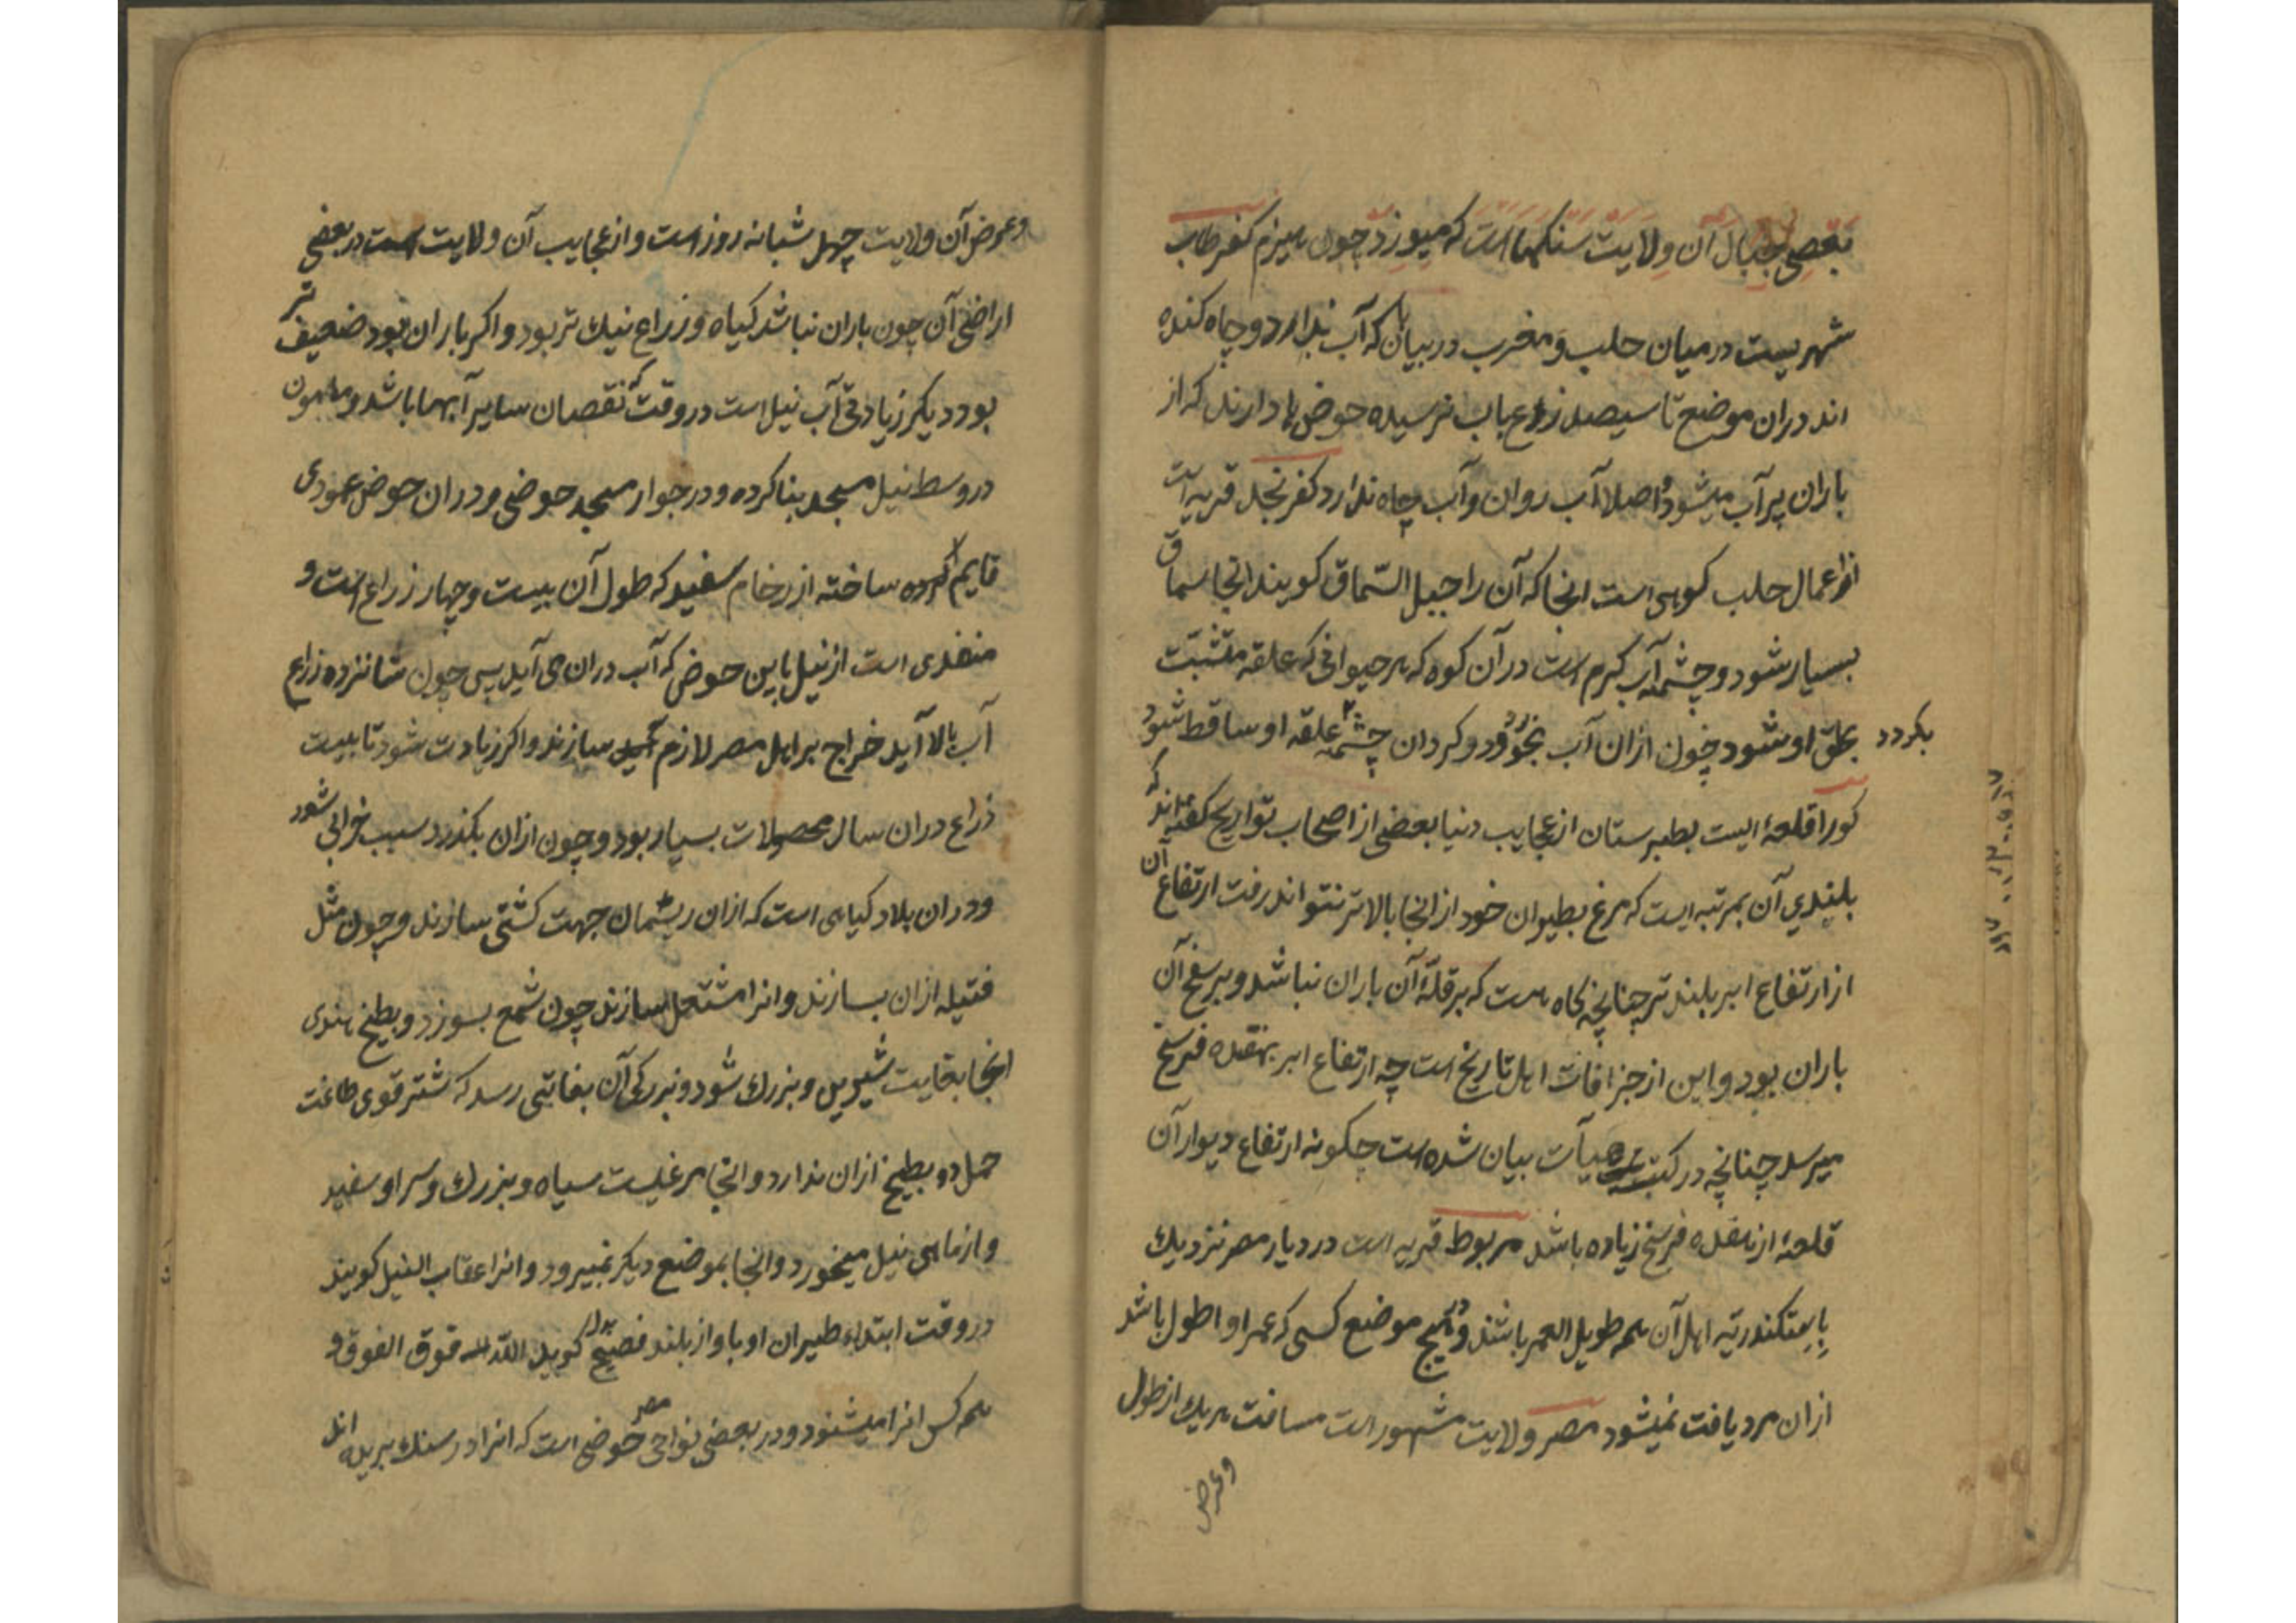 بعضی جبال آن ولایت سنکها است که میسوزد چون هیزم کفرطاب
شهریست در میان حلب و مغرب در بیابان که آب ندارد و چاه کنده
اند دران موضع تا سیصد زراع باب نرسیده حوض ها دارند که از
باران پر آب میشود و اصلا آب روان و آب چاه ندارد کفرنجد قریه است
از اعمال حلب کوهی است انجا که آن را جبل السّماق کویند انجا سماق
بسیار شود و چشمه آب کرم است در آن کوه که هر حیوانی که علقه متشبث
بحلق او شود چون ازان آب بخورد و کردان چشمه علقه او ساقط شود
بکردد
کورا قلعۀ ایست بطبرستان از عجایب دنیا بعضی از اصحاب تواریخ کفته اند که
بلندی آن بمرتبه ایست که مرغ بطیران خود از انجا بالاتر نتواند رفت ارتفاع آن
از ارتفاع ابر بلندتر چنانچه کاه هست که بر قلۀ آن باران نباشد و بر سفح آن
باران بود و این از جزافات اهل تاریخ است چه ارتفاع ابر بهفده فرسخ
میرسد چنانچه در کتب هیآت بیان شده است چکونه ارتفاع دیوار آن
قلعۀ از هفده فرسخ زیاده باشد مربوط قریه است در دیار مصر نزدیك
باسکندریه اهل آن همه طویل العمر باشند و در هیچ موضع کسی که عمر او اطول باشد
ازان مرد یافت نمیشود مصر ولایت مشهور است مسافت هریك از طول
وعرض
وعرض آن ولایت چهل شبانه روز است و از عجایب آن ولایت است در بعضی
اراضی آن چون باران نباشد کیاه و زراع نیك تر بود و اکر باران بود ضعیف تر
بود دیکر زیادتی آب نیل است در وقت که نقصان سایر آبها باشد و مامون
در وسط نیل مسجد بنا کرده و در جوار مسجد حوضی و در ان حوض عمودی
قایم کرده ساخته از رخام سفید که طول آن بیست و چهار زراع است و
منفذی است از نیل باین حوض که آب دران می آید پس چون شانزده زراع
آب بالا آید خراج بر اهل مصر لازم سازند و اکر زیادت شود تا بیست
ذراع دران سال محصولات بسیار بود و چون ازان بکذرد سبب خرابی شود
و دران بلاد کیاهی است که ازان ریسمان جهت کشتی سازند و چون مثل
فتیله ازان بسازند و انرا مشتعل سازند چون شمع بسوزد و بطیخ هندی
انجا بغایت شیرین و بزرك شود و بزرکی آن بغایتی رسد که شتر قوی طاقت
حمل دو بطیخ ازان ندارد و انجا مرغیست سیاه و بزرك و سر او سفید
و از ماهی نیل میخورد و انجا بموضع دیکر نمیرود و انرا عقاب النیل کویند
در وقت ابتداء طیران او باواز بلند فصیح کوید اللّه فوق الفوق و
همه کس انرا میشنود و در بعضی نواحی مصر حوضی است که انرا در سنك بریده اند